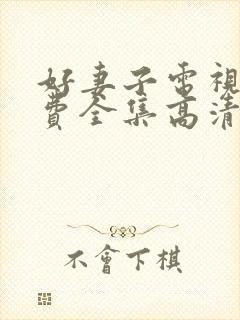 好妻子電視
費全集高清
不會下棋